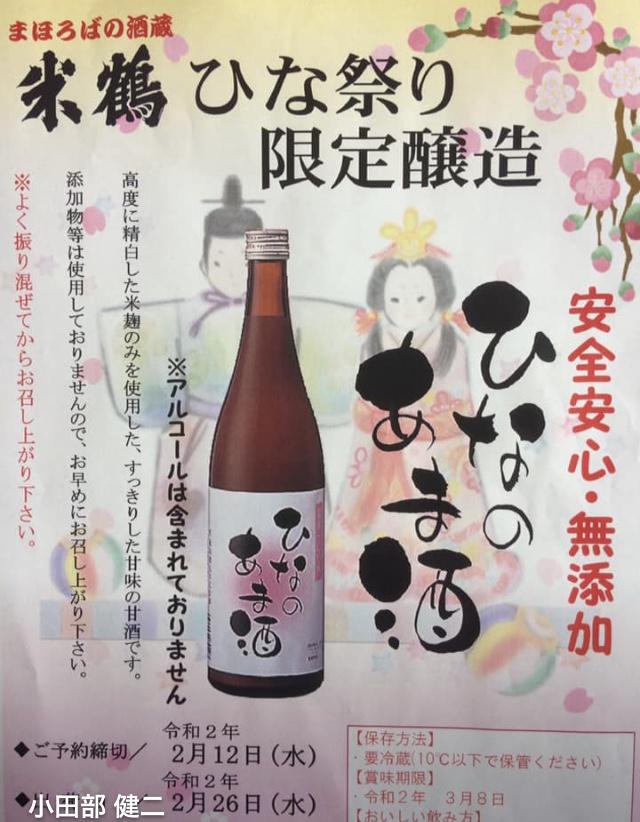 まほろばの酒蔵
米鶴 ひな祭り
限定醸造
安全安心・無添加
ひなの
あま酒
ひなの
あま酒
※アルコールは含まれておりません
高度に精白した米麹のみを使用した、すっきりした甘味の甘酒です。
添加物等は使用しておりませんので、お早めにお召し上がり下さい。
※よく振り混ぜてからお召し上がり下さい。
令和2年
◆ご予約締切/ 2月12日(水)
令和2年
2月26日(水)
【保存方法】
・要冷蔵(10℃以下で保管ください)
【賞味期限】
・令和2年 3月8日
【おいしい飲み方】
小田部 健二